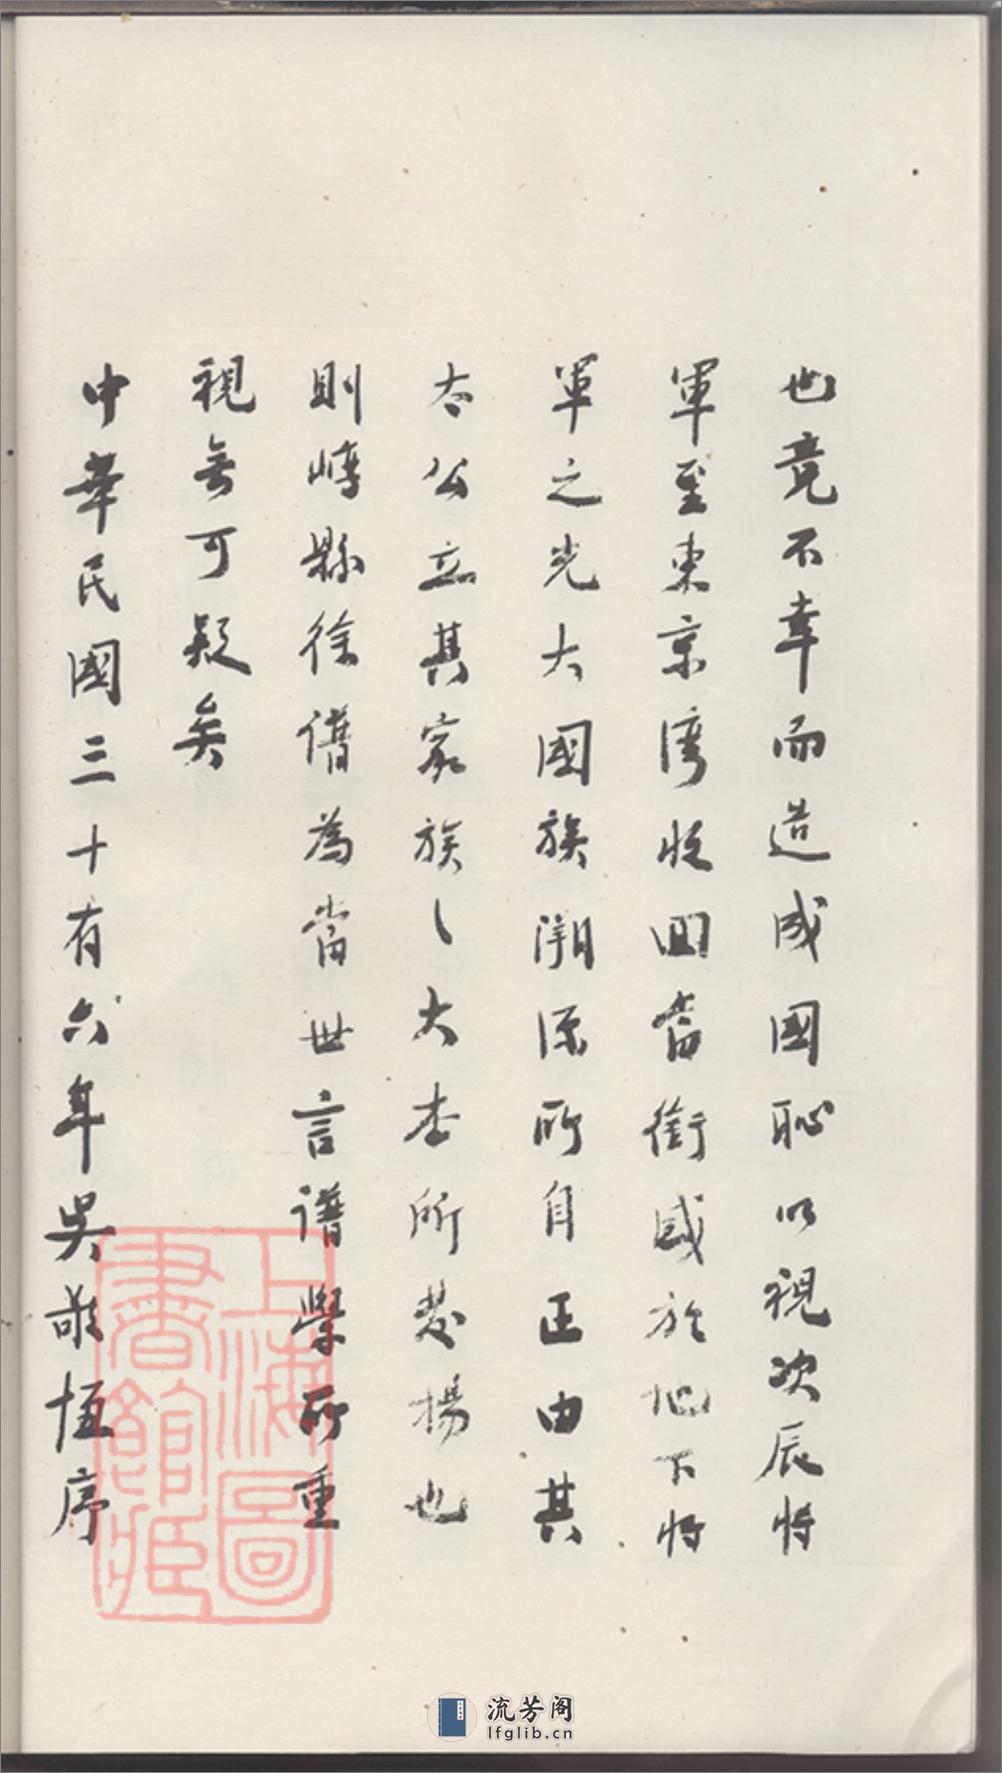 也竟不幸而造成國恥以視次辰將
軍至東京灣收回當銜感於地下將
軍之光大國族溯源所自正由其
太公立其家族之大本所發揚也
則嵊縣徐譜為當世言譜學所重
視無可疑矣
中華民國三十有六年吳敬恆序
上海圖
書館藏
流芳阁
lfglib.cn